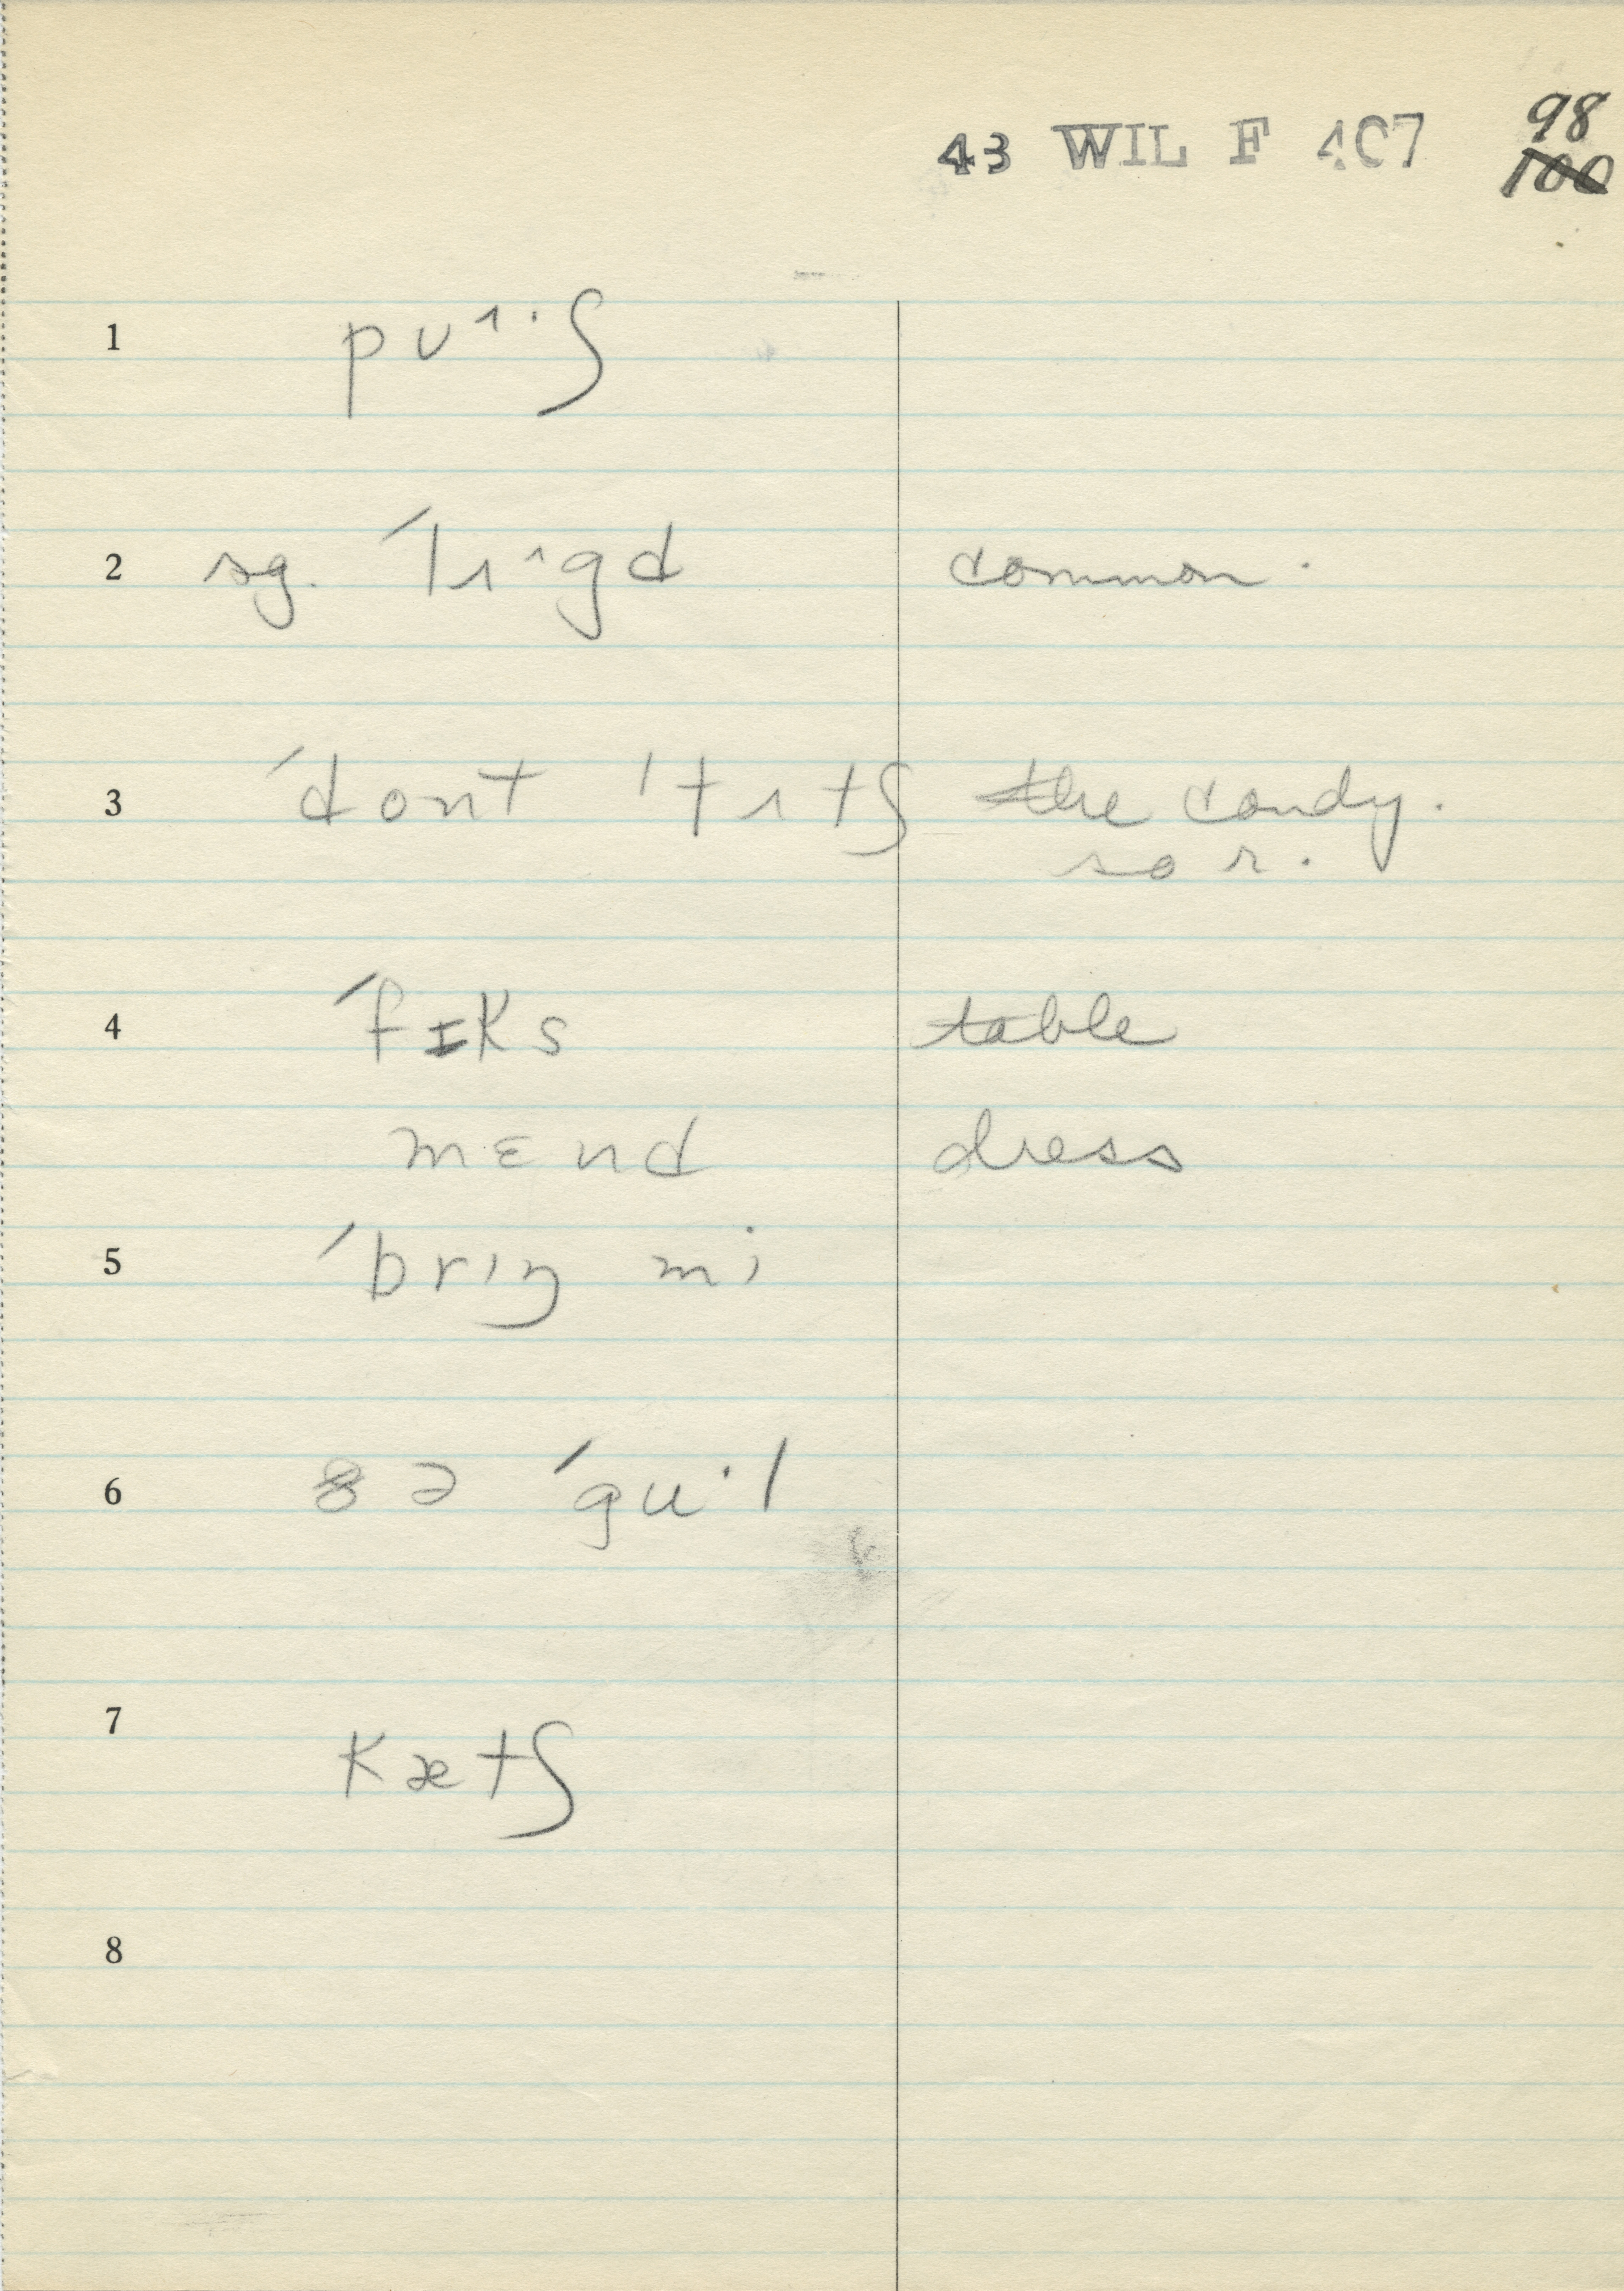 43 WIL F 407
98
100
1 pʊ˄·ʃ
2 sg. ˈlɪ˄gd common.
3 ˈdont ˈtɪtʃ the candy.
so r.
4 ˈfɪks table
mɛnd dress
5 ˈbrɪŋ mi
6 ðə ˈgu·l
7 kætʃ
8